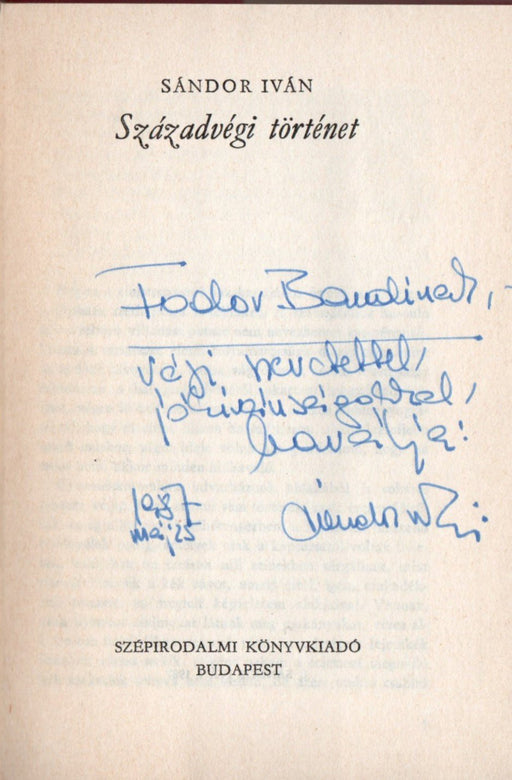 SÁNDOR IVÁN
Századvégi történet
Fodor Bandinak, -
régi szeretettel,
jókívánságokkal,
barátja:
1987
máj 25
Sándor Iván
SZÉPIRODALMI KÖNYVKIADÓ
BUDAPEST